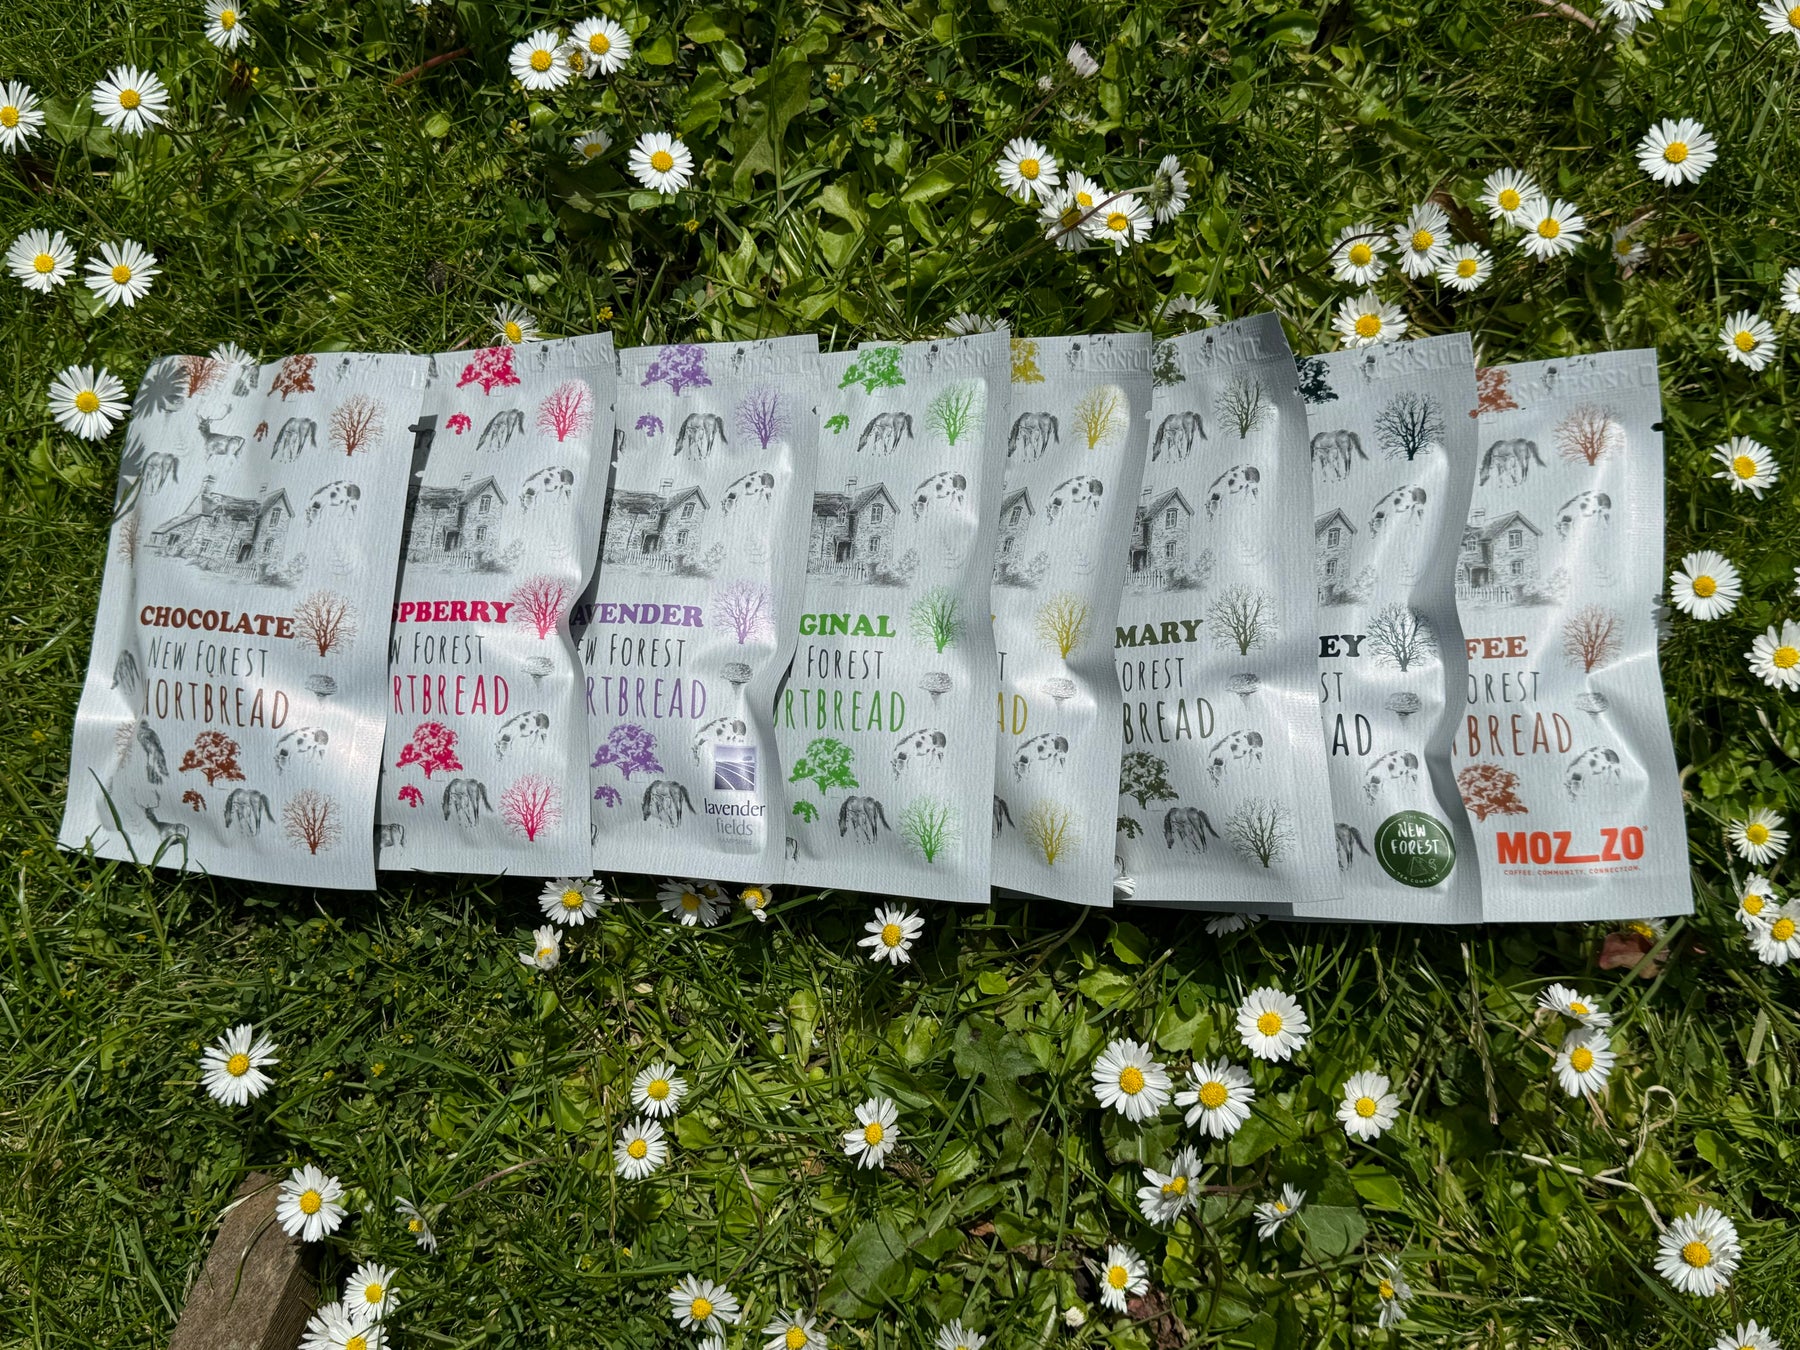 CHOCOLATE
NEW FOREST
HORTBREAD
SPBERRY
W FOREST
RTBREAD
AVENDER
EW FOREST
RTBREAD
lavender
fields
HAMPSHIRE
GINAL
FOREST
RTBREAD
AD
MARY
OREST
BREAD
EY
ST
AD
THE
NEW
FOREST
TEA COMPANY
FEE
OREST
TBREAD
MOZ_ZO
COFFEE. COMMUNITY. CONNECTION.